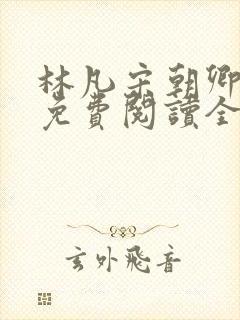 林凡宋朝卿
免費閱讀全
玄外飛音